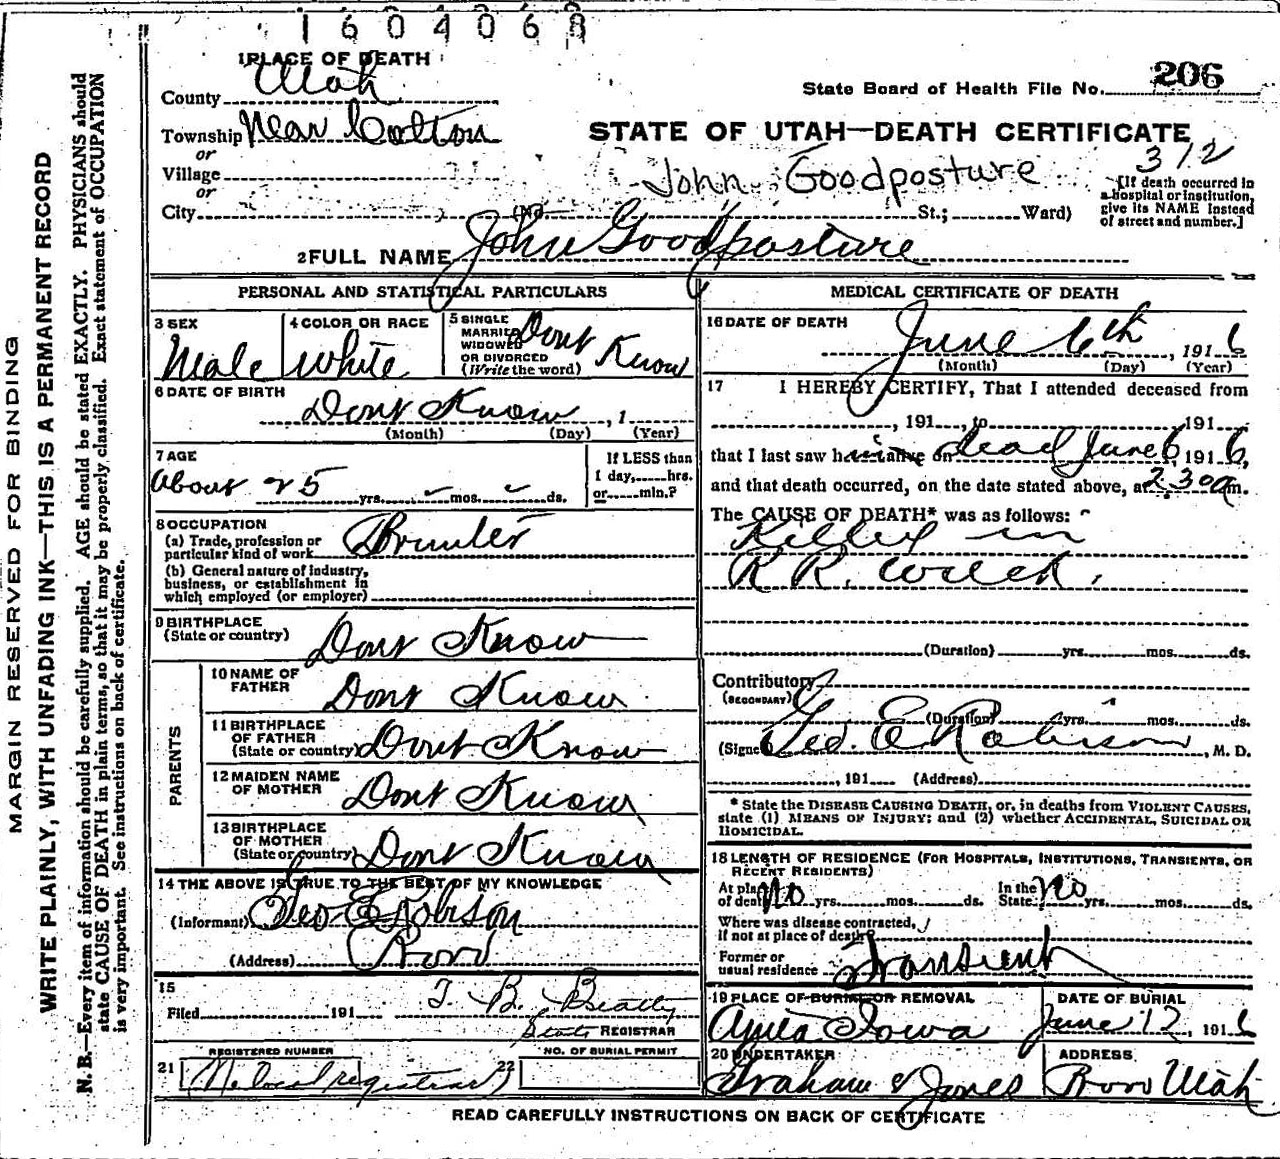 1604068
1 PLACE OF DEATH
State Board of Health File No. 206
County Utah
Township Near Colton
STATE OF UTAH—DEATH CERTIFICATE
or
312
Village
John Goodposture
or
City (No. St.; Ward)
[If death occurred in
a hospital or institution,
give its NAME instead
of street and number.]
2 FULL NAME John Goodposture
PERSONAL AND STATISTICAL PARTICULARS
3 SEX
Male
4 COLOR OR RACE
White
5 SINGLE
MARRIED
WIDOWED
OR DIVORCED
(Write the word)
Dont Know
6 DATE OF BIRTH
Dont Know , 1
(Month) (Day) (Year)
7 AGE
about 25 yrs. mos. ds.
If LESS than
1 day, hrs.
or min.?
8 OCCUPATION
(a) Trade, profession or
particular kind of work
(b) General nature of industry,
business, or establishment in
which employed (or employer)
9 BIRTHPLACE
(State or country) Dont Know
PARENTS
10 NAME OF
FATHER Dont Know
11 BIRTHPLACE
OF FATHER
(State or country) Dont Know
12 MAIDEN NAME
OF MOTHER Dont Know
13 BIRTHPLACE
OF MOTHER
(State or country) Dont Know
14 THE ABOVE IS TRUE TO THE BEST OF MY KNOWLEDGE
(Informant) Geo E Robison
(Address) Provo
15
Filed 191 T. B. Beatty
State REGISTRAR
REGISTERED NUMBER
21 (No local registrar)
NO. OF BURIAL PERMIT
22
MEDICAL CERTIFICATE OF DEATH
16 DATE OF DEATH
June 6th , 1916
(Month) (Day) (Year)
17 I HEREBY CERTIFY, That I attended deceased from
, 191 , to 191
that I last saw him alive on dead June 6, 1916,
and that death occurred, on the date stated above, at 2.30 a m.
The CAUSE OF DEATH* was as follows:
Killed in
R R. Wreck.
(Duration) yrs. mos. ds.
Contributory
(SECONDARY)
(Duration) yrs. mos. ds.
(Signed) Geo. E Robison, M. D.
, 191 (Address)
* State the DISEASE CAUSING DEATH, or, in deaths from VIOLENT CAUSES,
state (1) MEANS OF INJURY; and (2) whether ACCIDENTAL, SUICIDAL OR
HOMICIDAL.
18 LENGTH OF RESIDENCE (FOR HOSPITALS, INSTITUTIONS, TRANSIENTS, OR
RECENT RESIDENTS)
At place
of death No yrs. mos. ds.
In the
State No yrs. mos. ds.
Where was disease contracted,
if not at place of death?
Former or
usual residence Transient
19 PLACE OF BURIAL OR REMOVAL
Iowa
DATE OF BURIAL
June 12, 1916
20 UNDERTAKER
Graham & Jones
ADDRESS
Provo Utah
READ CAREFULLY INSTRUCTIONS ON BACK OF CERTIFICATE
MARGIN RESERVED FOR BINDING
WRITE PLAINLY, WITH UNFADING INK—THIS IS A PERMANENT RECORD
N. B.—Every item of information should be carefully supplied. AGE should be stated EXACTLY. PHYSICIANS should
state CAUSE OF DEATH in plain terms, so that it may be properly classified. Exact statement of OCCUPATION
is very important. See instructions on back of certificate.